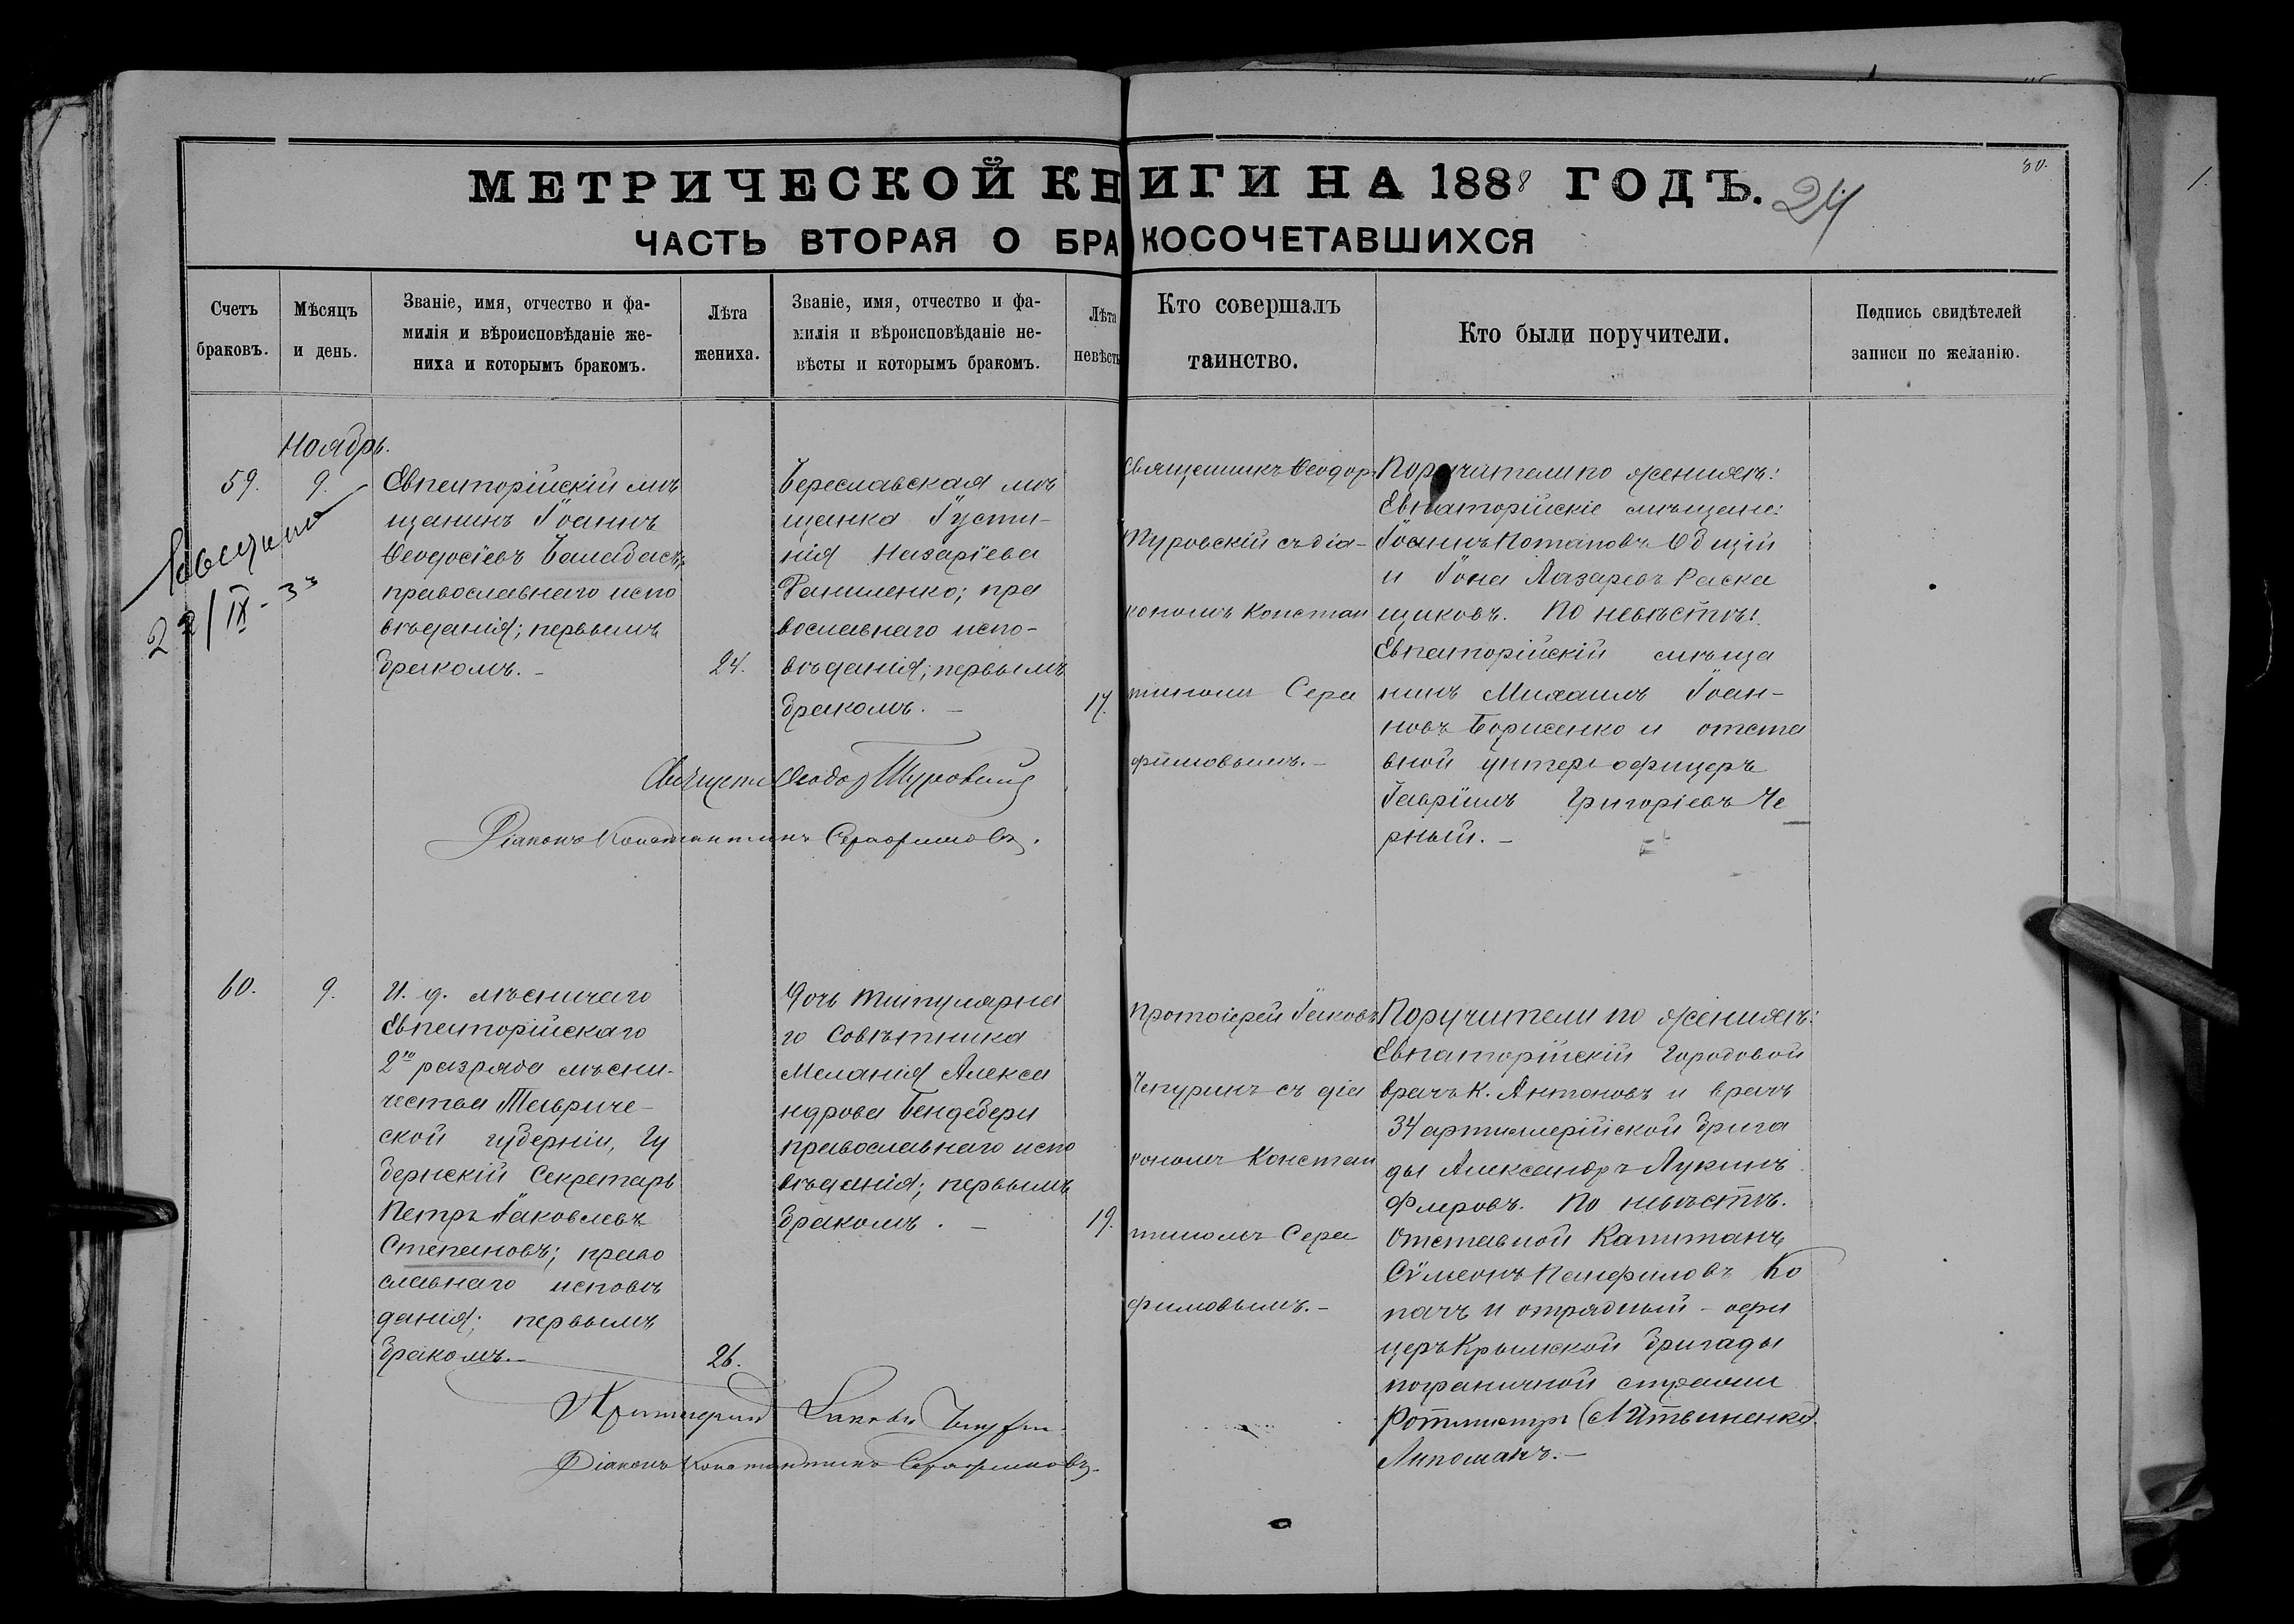 30.
МЕТРИЧЕСКОЙ КНИГИ НА 1888 ГОДЪ. 24
ЧАСТЬ ВТОРАЯ О БРАКОСОЧЕТАВШИХСЯ
Счетъ
браковъ.
Мѣсяцъ
и день.
Званіе, имя, отчество и фа-
милія и вѣроисповѣданіе же-
ниха и которымъ бракомъ.
Лѣта
жениха.
Званіе, имя, отчество и фа-
милія и вѣроисповѣданіе не-
вѣсты и которымъ бракомъ.
Лѣта
невѣсты
Кто совершалъ
таинство.
Кто были поручители.
Подпись свидѣтелей
записи по желанію.
Ноябрь.
59.
9.
22/IX-33
Евпаторійскій мѣ
щанинъ Іоаннъ
Ѳеодосіевъ
православнаго испо
вѣданія; первымъ
бракомъ. -
24.
Береславская мѣ
щанка Іусти-
нія Назаріева
Даниленко; пра
вославнаго испо-
вѣданія; первымъ
бракомъ. -
17.
Священникъ Ѳеодоръ
Туровскій съ діа-
кономъ Констан
тиномъ Сера
фимовымъ. -
Поручители по женихѣ:
Евпаторійскіе мѣщане:
Іоаннъ Потаповъ
и Іона Лазаревъ Раска
щиковъ. По невѣстѣ:
Евпаторійскій мѣща
нинъ Михаилъ Іоан-
новъ Борисенко и отста
вной унтеръ-офицеръ
Гавріилъ Григоріевъ Че
рный. -
Ѳеодоръ Туровскій
Діаконъ Константинъ Серафимовъ.
60.
9.
И. д. лѣсничаго
Евпаторійскаго
2го разряда лѣсни-
чества Тавриче-
ской губерніи, Гу
бернскій Секретарь
Петръ Іаковлевъ
Степановъ; право
славнаго исповѣ
данія; первымъ
бракомъ. -
26.
Дочь титулярна
го Совѣтника
Меланія Алекса
ндрова Бендебери
православнаго испо
вѣданія; первымъ
бракомъ. -
19.
Протоіерей Іаковъ
Чепуринъ съ діа
кономъ Констан
тиномъ Сера
фимовымъ. -
Поручители по женихѣ:
Евпаторійскій Городовой
врачъ К. Антоновъ и врачъ
34 артиллерійской брига
ды Александръ Лукинъ
Флеровъ. По невѣстѣ.
Отставной Капитанъ
Сѵмеонъ Панфиловъ Ко
пачъ и отрядный - офи
церъ Крымской бригады
пограничной стражи
Ротмистръ
Липоманъ. -
Протоіерей Іаковъ Чепуринъ
Діаконъ Константинъ Серафимовъ.